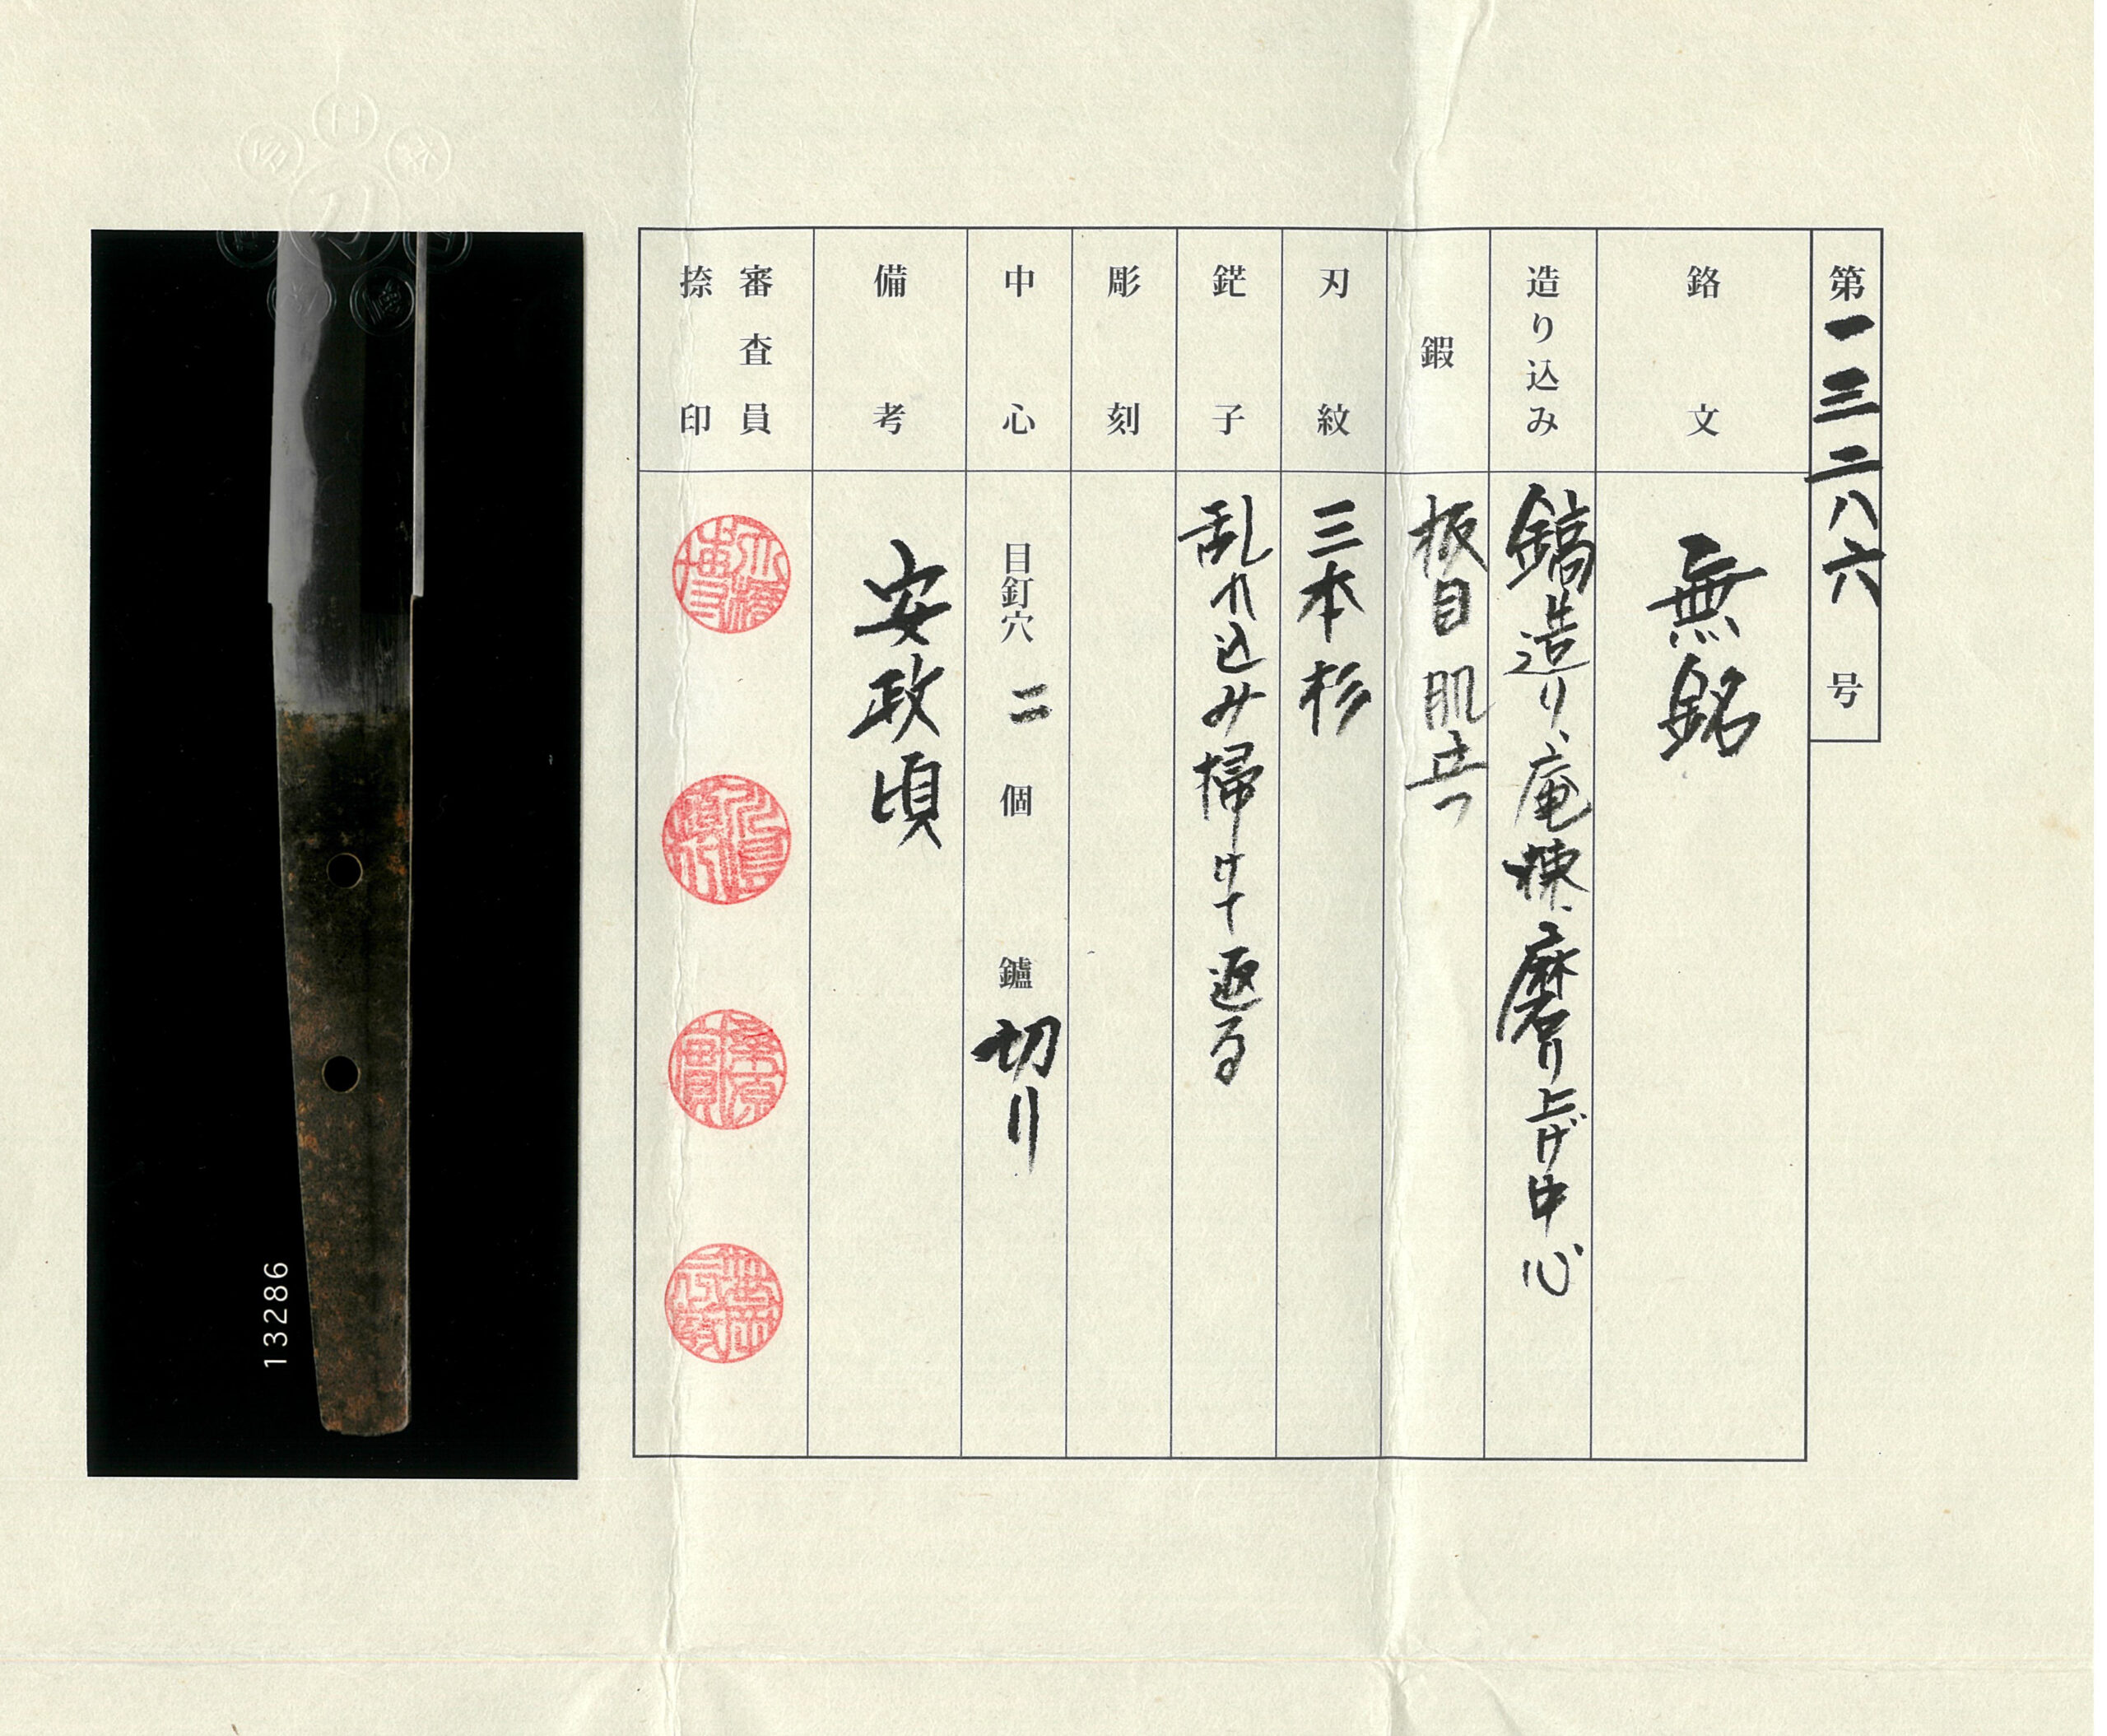 第一三二八六号
銘文 無銘
造り込み 鎬造り、庵棟、磨り上げ中心
鍜 板目肌立つ
刃紋 三本杉
鋩子 乱れ込み掃けて返る
彫刻
中心 目釘穴 二 個 鑢 切り
備考 安政頃
審査員
捺印
13286